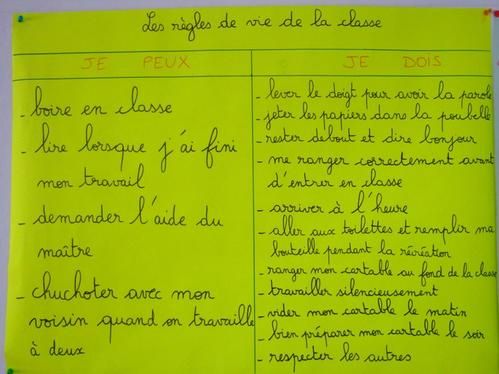 Les règles de vie de la classe
JE PEUX
- boire en classe
- lire lorsque j'ai fini
mon travail
- demander l'aide du
maître
- chuchoter avec mon
voisin quand on travaille
à deux
JE DOIS
- lever le doigt pour avoir la parole
- jeter les papiers dans la poubelle
- rester debout et dire bonjour
- me ranger correctement avant
d'entrer en classe
- arriver à l'heure
- aller aux toilettes et remplir ma
bouteille pendant la récréation
- ranger mon cartable au fond de la classe
- travailler silencieusement
- vider mon cartable le matin
- bien préparer mon cartable le soir
- respecter les autres